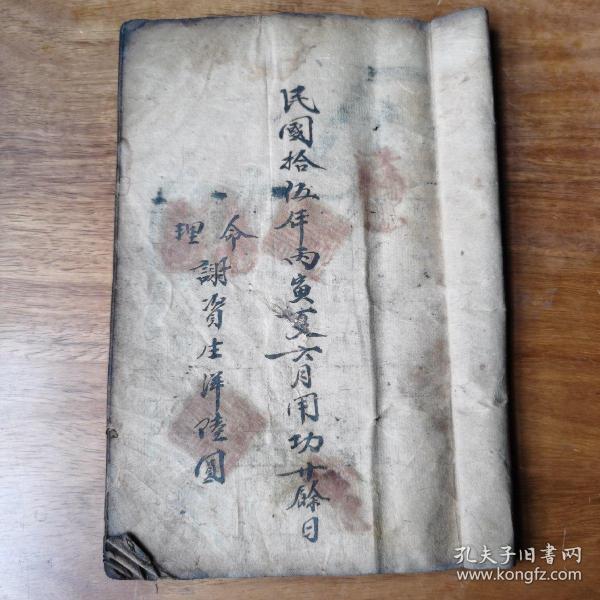 民國拾伍年丙寅夏六月用功廿餘日
命理
謝資生洋陸圓
孔夫子旧书网
www.kongfz.com